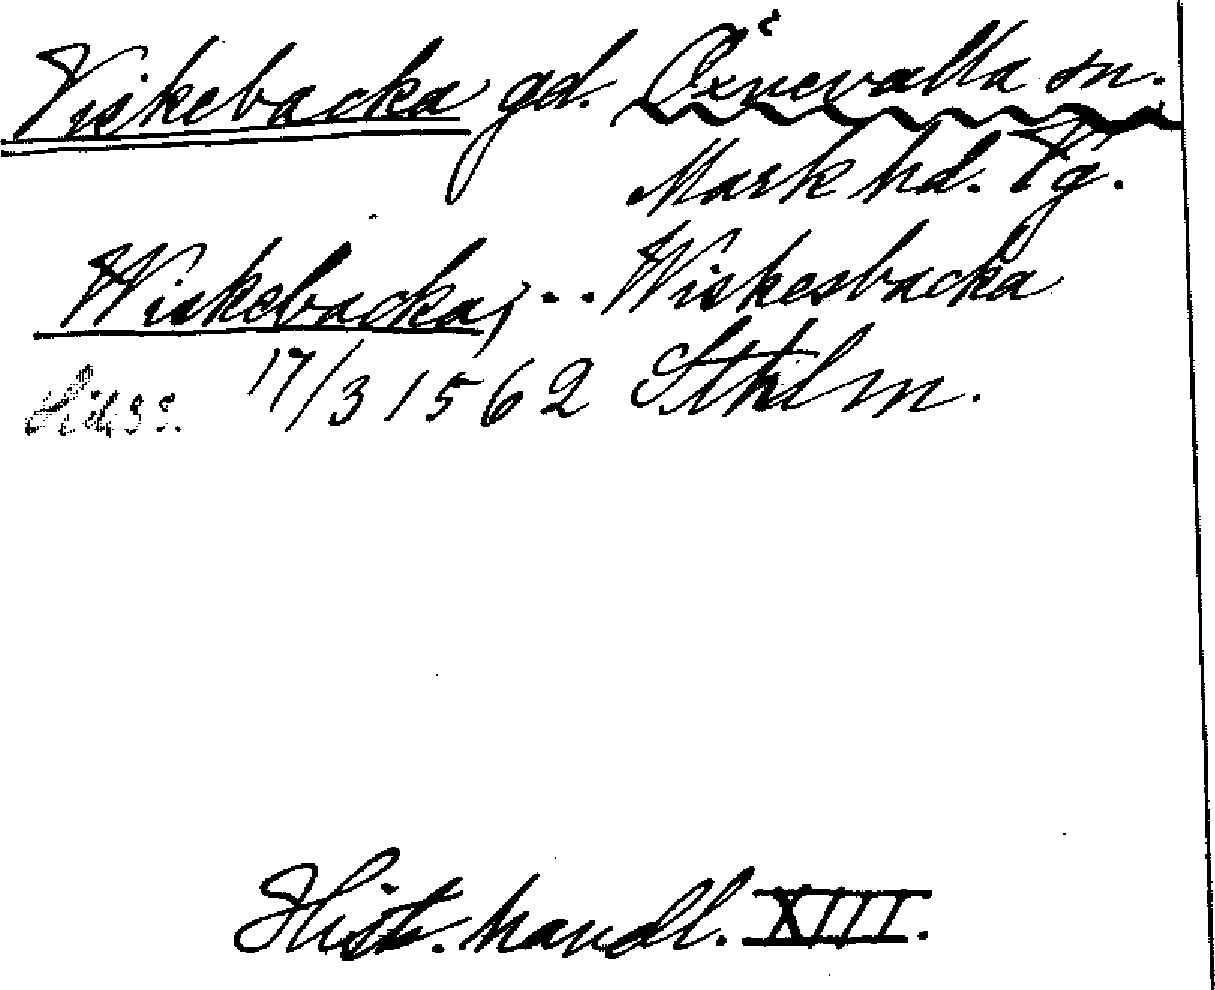 Viskebacka gd. Öxnevalla sn.
Mark hd. Vg.
Wiskebacka, ... Wiskesbacka
17/3 1562 Sthlm.
Hist. handl. XIII.